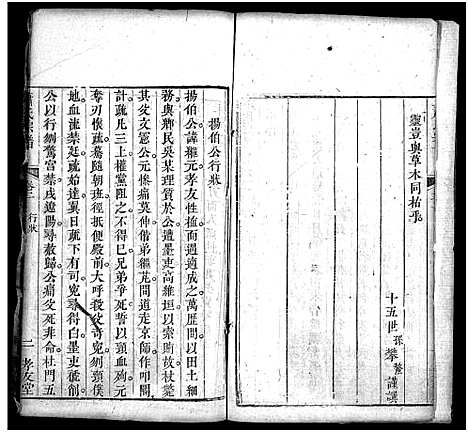 靈豈與草木同枯乎
十五世孫攀鰲謹譔
揚伯公行狀
揚伯公諱繼元孝友性植而適成之萬歷間以田土
務與鄰民吳某理質於公遭墨吏高維垣以索賄故杖斃
其父文憲公元傺痛莫伸偕弟繼芃間道走京師作叩閽
計疏凡三上權黨阻之不得已兄弟爭死誓以頸血殉元
奪刃懷疏驀隨朝班徑抵便殿前大呼殺父奇冤刎頸僕
地血流禁廷疏始達翼日疏下有司冤尋得白墨吏褫削
公以行綱驚宮禁戍遼陽尋赦歸公痛父死非命杜門五
氏宗譜
卷二
行狀
二
孝友堂